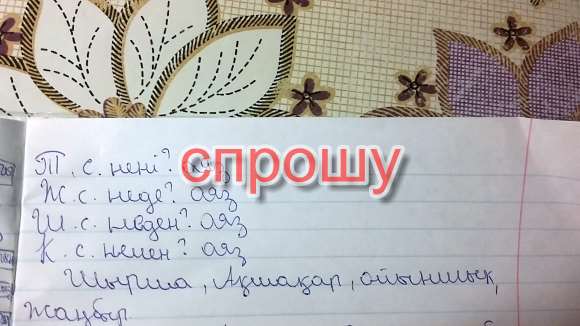 Т. с. нені? аяз
спрошу
Ж. с. неде? аяз
Ш. с. неден? аяз
К. с. немен? аяз
Шырша, Ақшақар, ойыншық,
жаңбыр